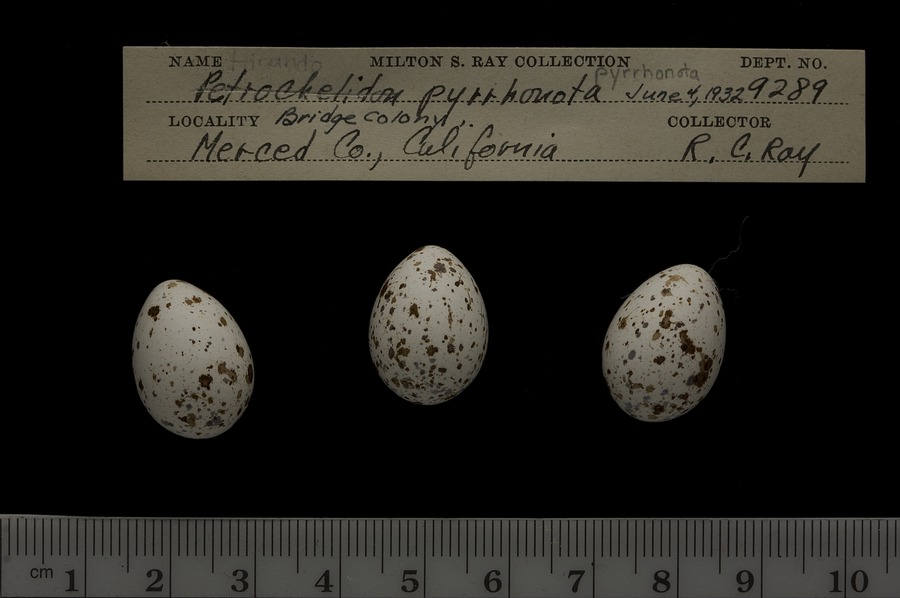 NAME Hirundo MILTON S. RAY COLLECTION DEPT. NO.
pyrrhonota
Petrochelidon pyrrhonota June 4, 1932 9289
LOCALITY Bridge colony, COLLECTOR
Merced Co., California R. C. Ray
cm 1 2 3 4 5 6 7 8 9 10